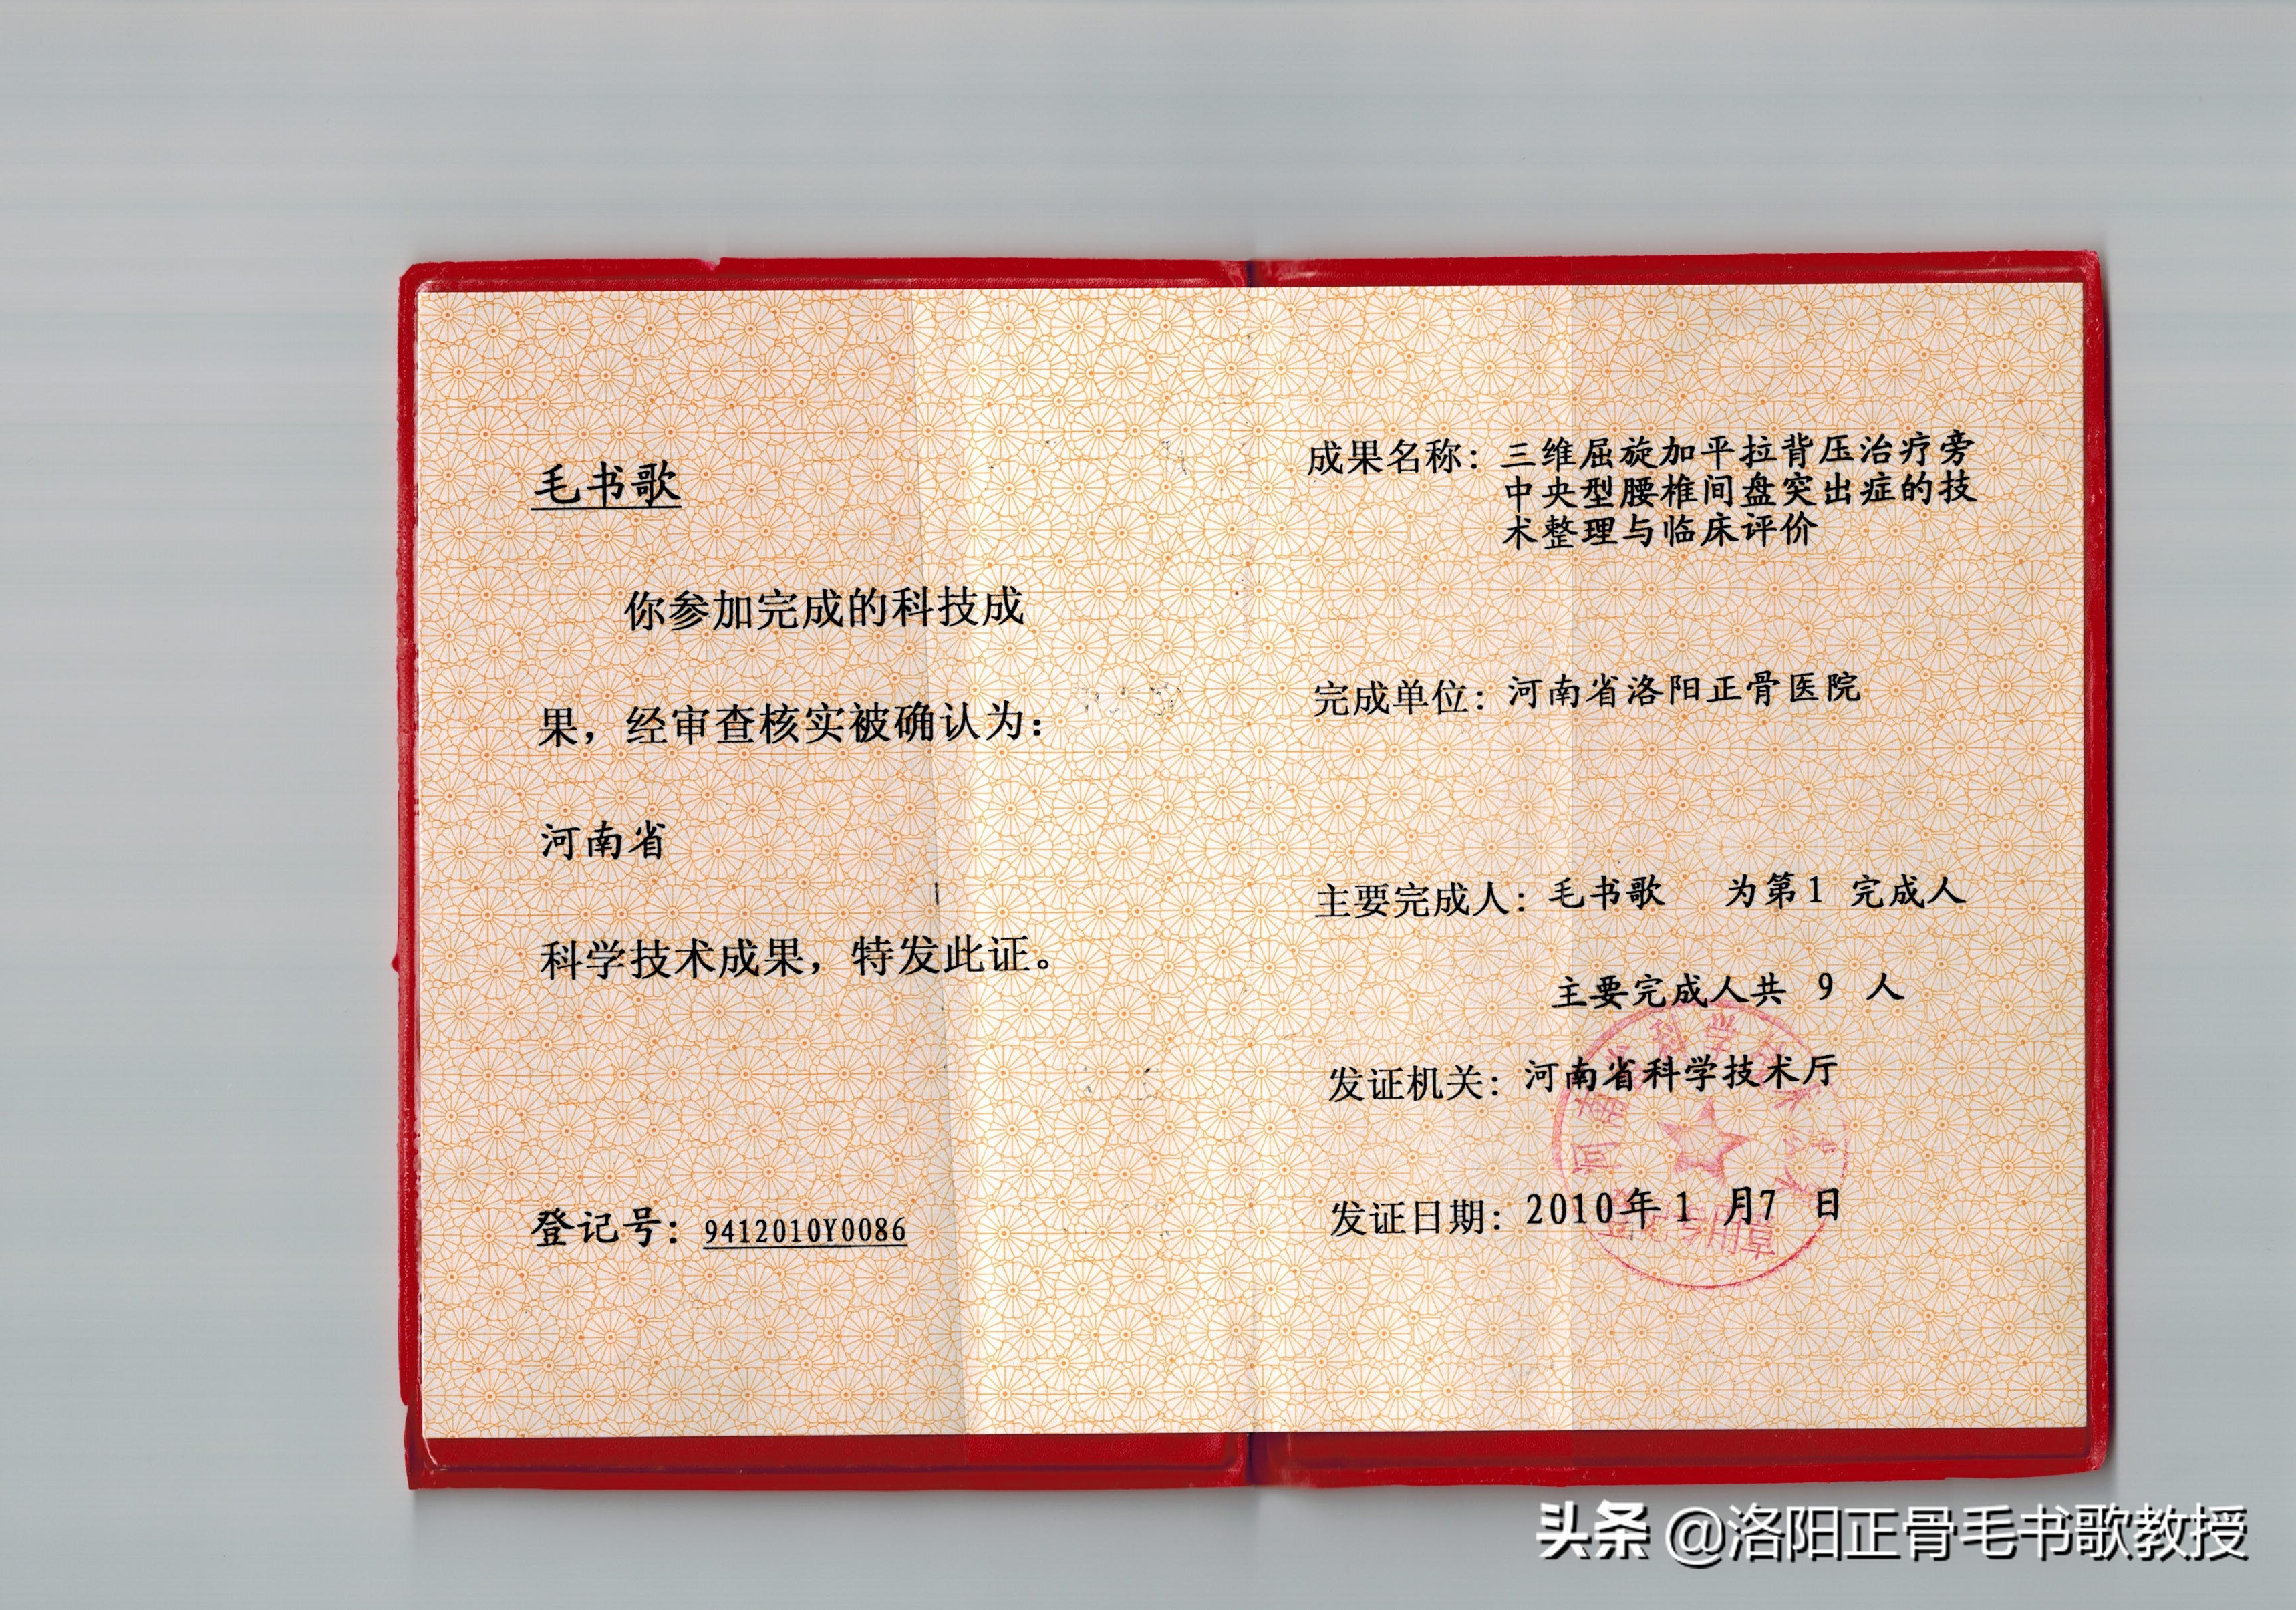 毛书歌
你参加完成的科技成
果，经审查核实被确认为：
河南省
科学技术成果，特发此证。
登记号：9412010Y0086
成果名称：三维屈旋加平拉背压治疗旁
中央型腰椎间盘突出症的技
术整理与临床评价
完成单位：河南省洛阳正骨医院
主要完成人：毛书歌 为第1 完成人
主要完成人共 9 人
发证机关：河南省科学技术厅
发证日期：2010年1 月7 日
头条 @洛阳正骨毛书歌教授